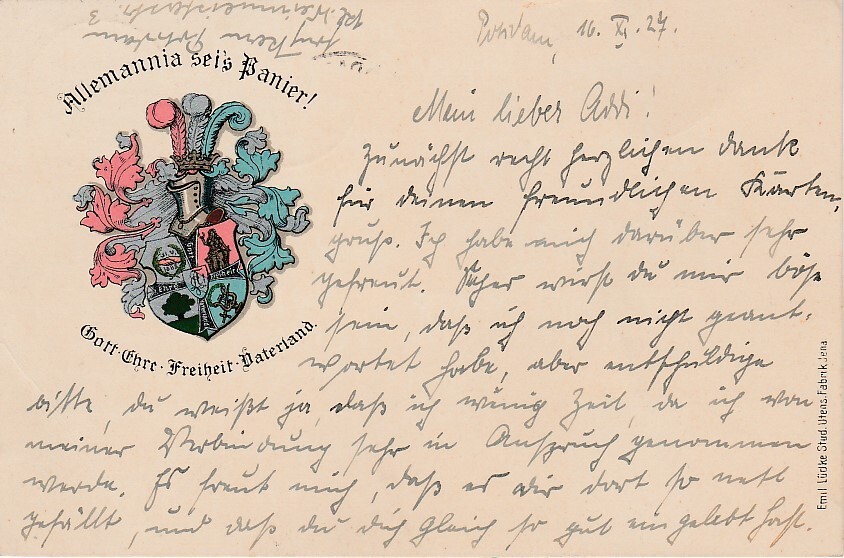 Potsdam, 16. XI. 27.
Allemannia sei's Panier!
Mein lieber Addi!
Zunächst recht herzlichen Dank
für deinen freundlichen Karten-
gruß. Ich habe mich darüber sehr
gefreut. wirst du mir böse
sein, daß ich noch nicht geant-
wortet habe, aber entschuldige
bitte, du weißt ja, daß ich wenig Zeit, da ich von
meiner Verbindung sehr in Anspruch genommen
werde. Es freut mich, daß es dir dort so nett
gefällt, und daß du dich gleich so gut eingelebt hast.
Gott · Ehre · Freiheit · Vaterland.
Ehre
Emil Lüdke Stud. Utens. Fabrik Jena